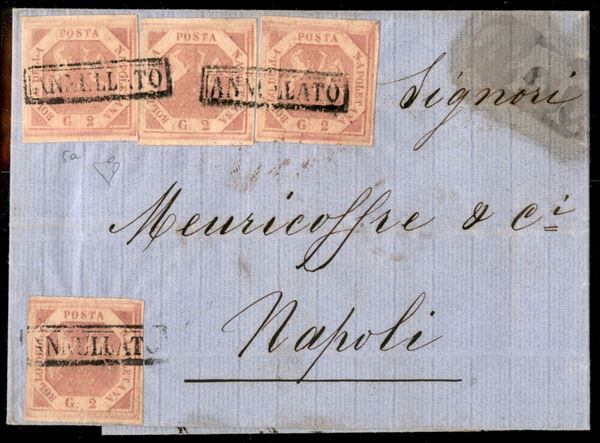 POSTA POSTA POSTA
ANNULLATO ANNULLATO
G. 2 G. 2 G. 2
Signori
5a
Meuricoffre & Ci
Napoli
POSTA
ANNULLATO
G. 2